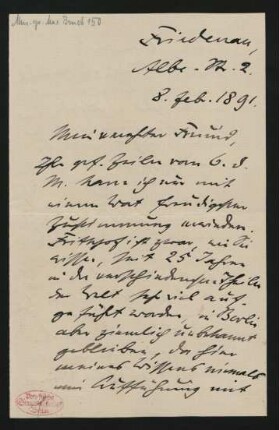 Mus. ep. Max Bruch 150
Friedenau,
Albe-Str. 2.
8. Feb. 1891.
Mein verehrter Freund,
Ihre gef. Zeilen vom 6. d.
M. kann ich nur mit
einem Wort freudigster
Zustimmung erwidern.
Frithjof ist zwar, wie Sie
wissen, seit 25 Jahren
in den verschiedensten Theilen
der Welt sehr viel auf-
geführt worden, in Berlin
aber ziemlich unbekannt
geblieben, da hier
meines Wissens niemals
eine Aufführung mit